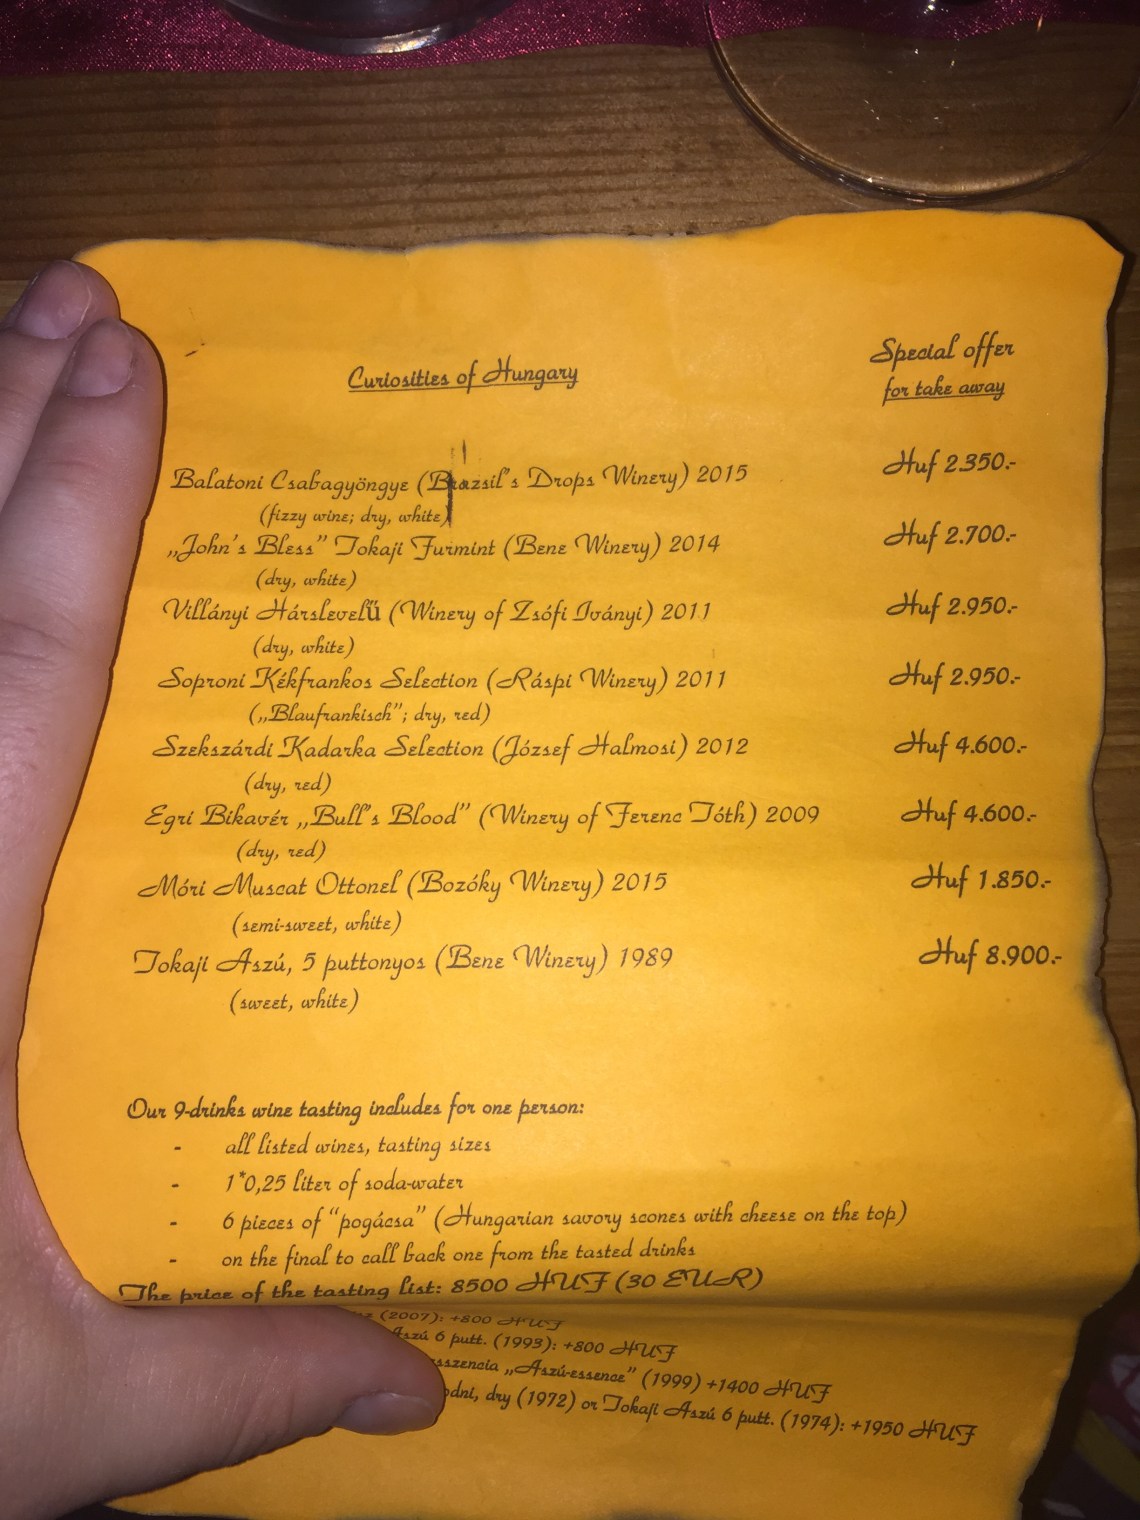 Special offer
Curiosities of Hungary
for take away
Balatoni Csabagyöngye (Brazsil's Drops Winery) 2015 Huf 2350.-
(fizzy wine; dry, white)
„John's Bless” Tokaji Furmint (Bene Winery) 2014 Huf 2.700.-
(dry, white)
Villányi Hárslevelű (Winery of Zsófi Iványi) 2011 Huf 2.950.-
(dry, white)
Soproni Kékfrankos Selection (Ráspi Winery) 2011 Huf 2.950.-
(„Blaufrankisch”; dry, red)
Szekszárdi Kadarka Selection (József Halmosi) 2012 Huf 4.600.-
(dry, red)
Egri Bikavér „Bull's Blood” (Winery of Ferenc Tóth) 2009 Huf 4.600.-
(dry, red)
Móri Muscat Ottonel (Bozóky Winery) 2015 Huf 1.850.-
(semi-sweet, white)
Tokaji Aszú, 5 puttonyos (Bene Winery) 1989 Huf 8.900.-
(sweet, white)
Our 9-drinks wine tasting includes for one person:
- all listed wines, tasting sizes
- 1*0,25 liter of soda-water
- 6 pieces of “pogácsa” (Hungarian savory scones with cheese on the top)
- on the final to call back one from the tasted drinks
The price of the tasting list: 8500 HUF (30 EUR)
(2007): +800 HUF
Aszú 6 putt. (1993): +800 HUF
„Aszú-essence” (1999) +1400 HUF
dry (1972) or Tokaji Aszú 6 putt. (1974): +1950 HUF